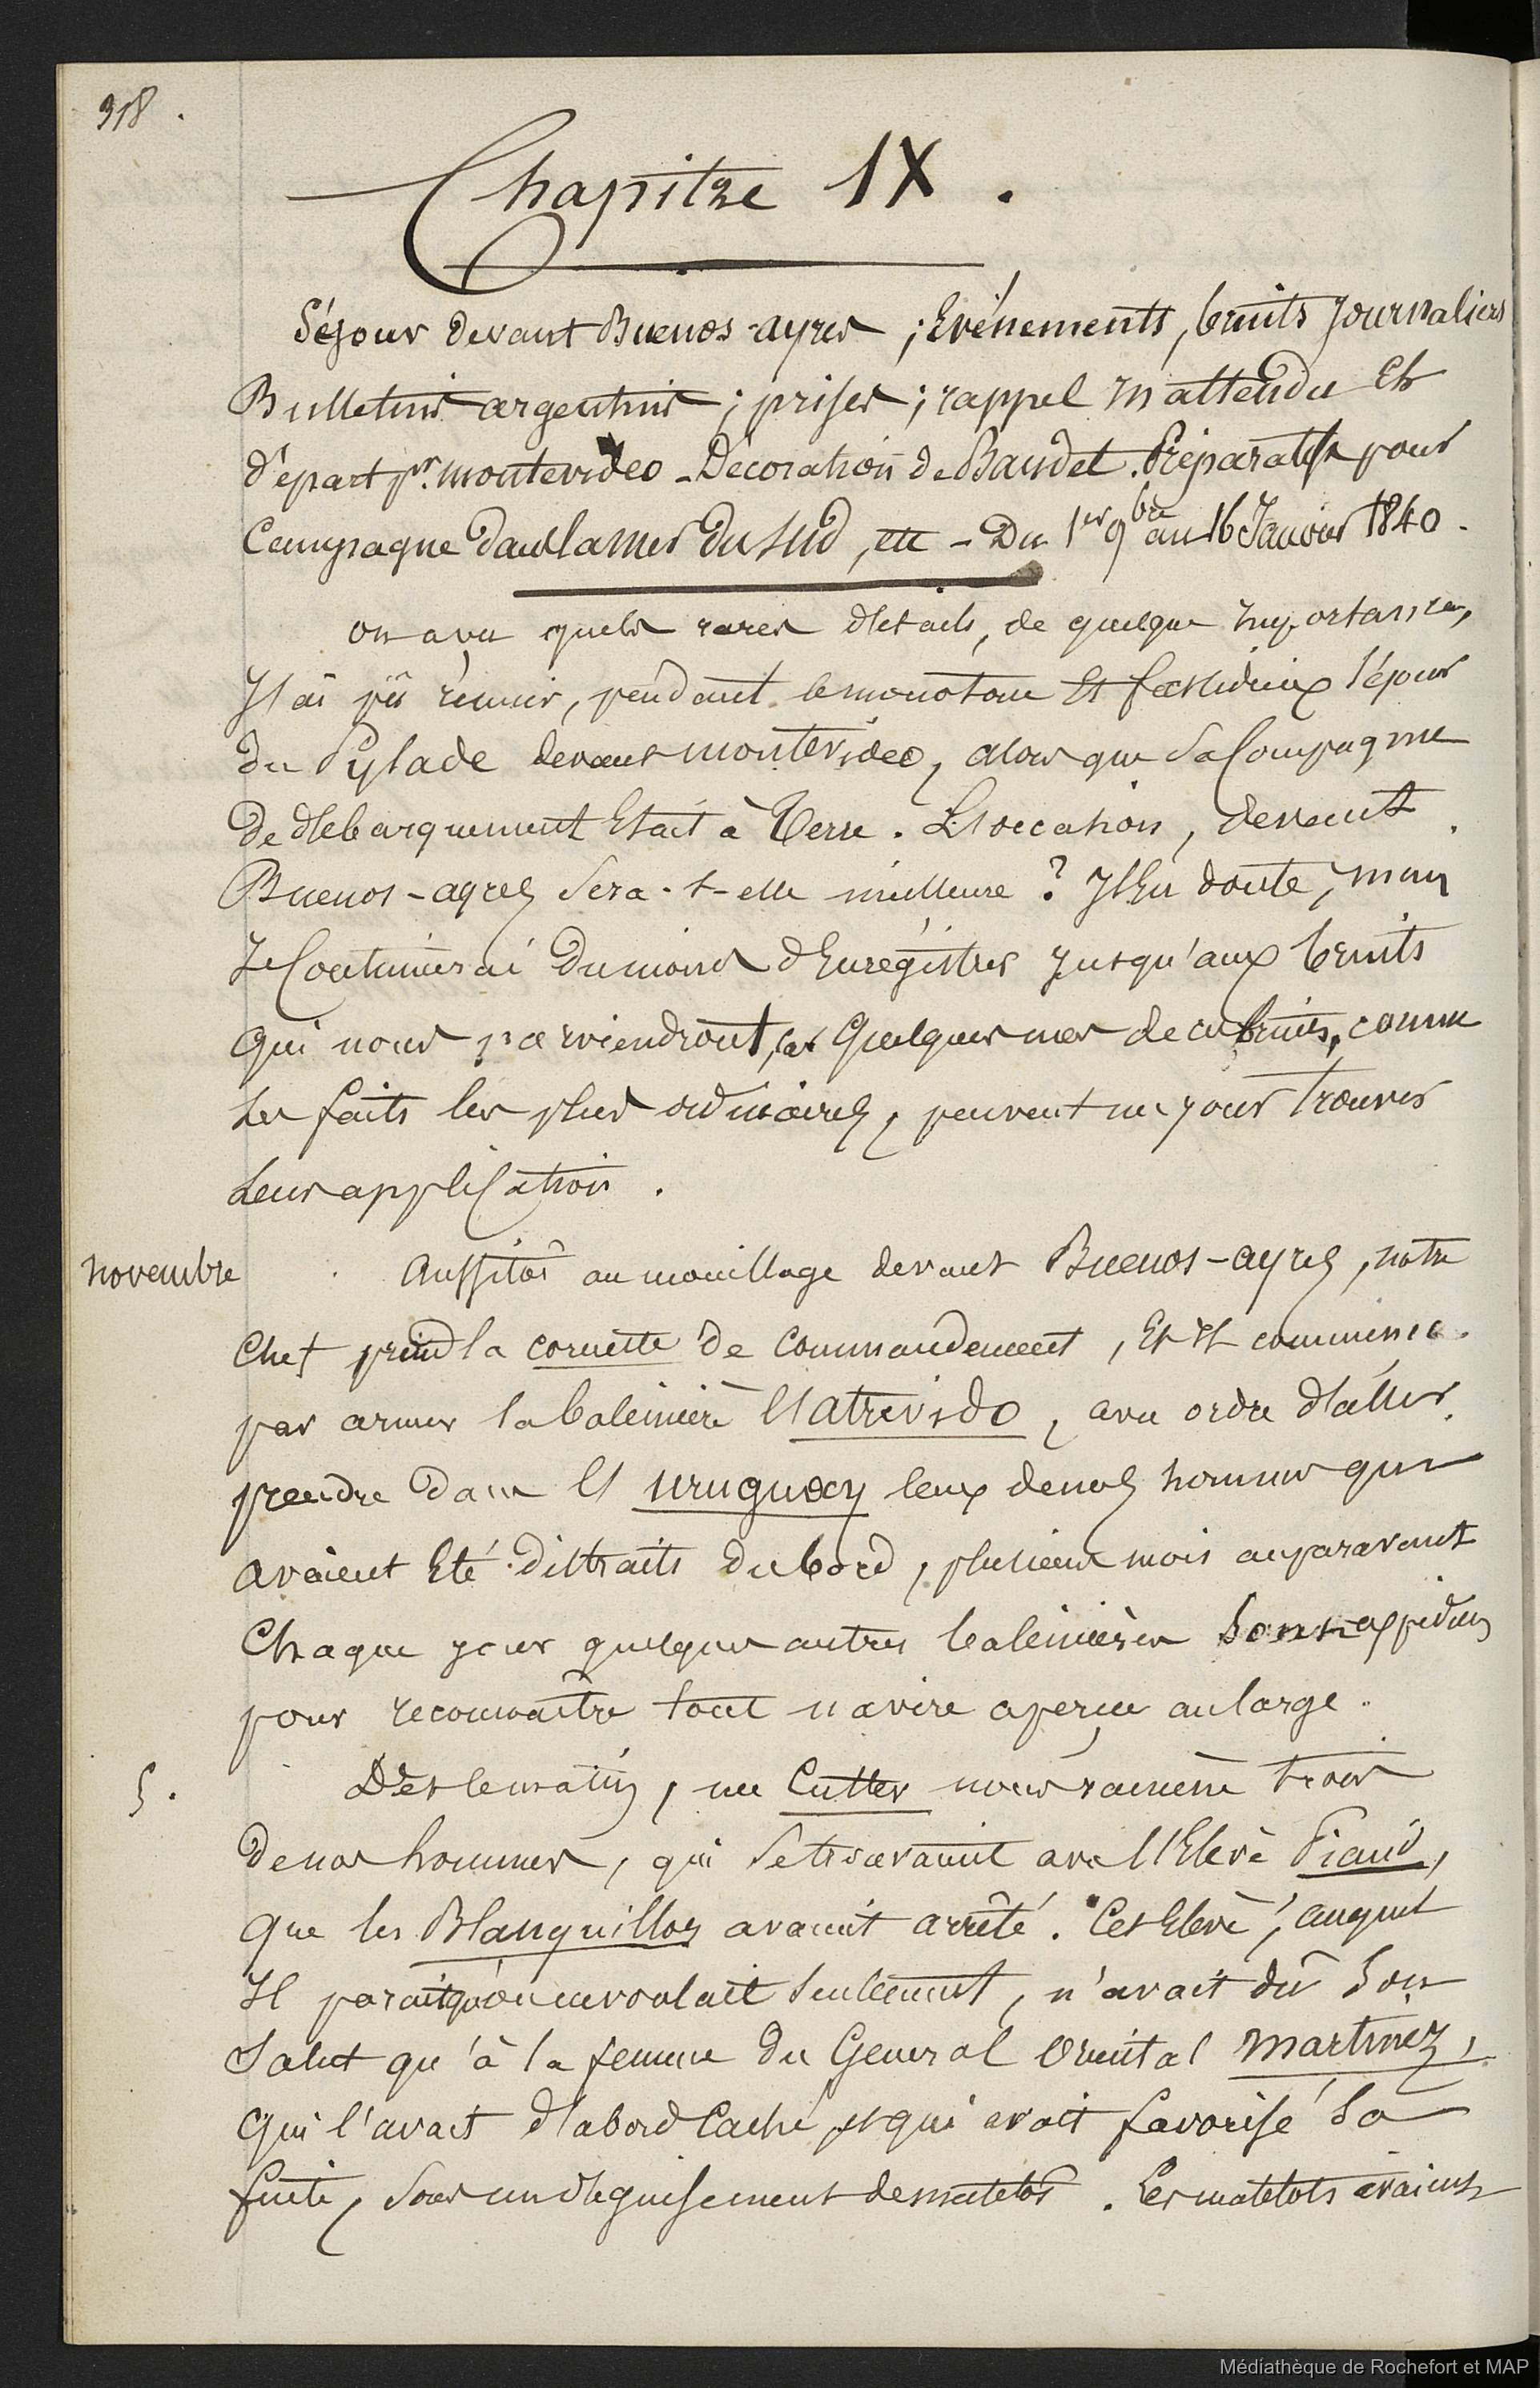 318.
Chapitre IX.
Séjour devant Buenos-ayres ; Evénements, bruits journaliers
Bulletins argentins ; prises ; rappel inattendu Et
départ pr. montevideo - Décoration de Baudet. Préparatifs pour
Campagne dans la mer du sud, etc - Du 1er 9bre au 16 Janvier 1840.
on a vu quels rares détails, de quelque importance,
J'ai pû réunir, pendant le monotone Et fastidieux séjour
du Pylade devant montevideo, alors que sa Compagnie
de débarquement Etait à Terre. L'occasion, devant
Buenos-ayres sera-t-elle meilleure ? J'En doute, mais
Je Continuerai du moins d'Enregistrer jusqu'aux bruits
qui nous parviendront, car quelques uns de ces bruits, comme
les faits les plus ordinaires, peuvent un jour trouver
leur application.
novembre
Aussitôt au mouillage devant Buenos-ayres, notre
Chef prend la cornette de Commandement, Et Il commence
par armer la baleinière l'atrevido, avec ordre d'aller
prendre dans l'uruguay ceux de nos hommes qui
avaient Eté distraits du bord, plusieurs mois auparavant
Chaque jour quelques autres baleinières sont expédiées
pour reconnaître tout navire aperçu au large.
5.
Dès le matin, un Cutter nous ramène trois
de nos hommes, qui se trouvaient avec l'Elève Piaud,
que les Blanquillos avaient arrêté. Cet Elève, auquel
Il parait qu'on en voulait seulement, n'avait dû son
salut qu'à la femme du Général Oriental martinez,
qui l'avait d'abord Caché, et qui avait favorisé sa
fuite, sous un déguisement de matelot. Les matelots avaient
Médiathèque de Rochefort et MAP